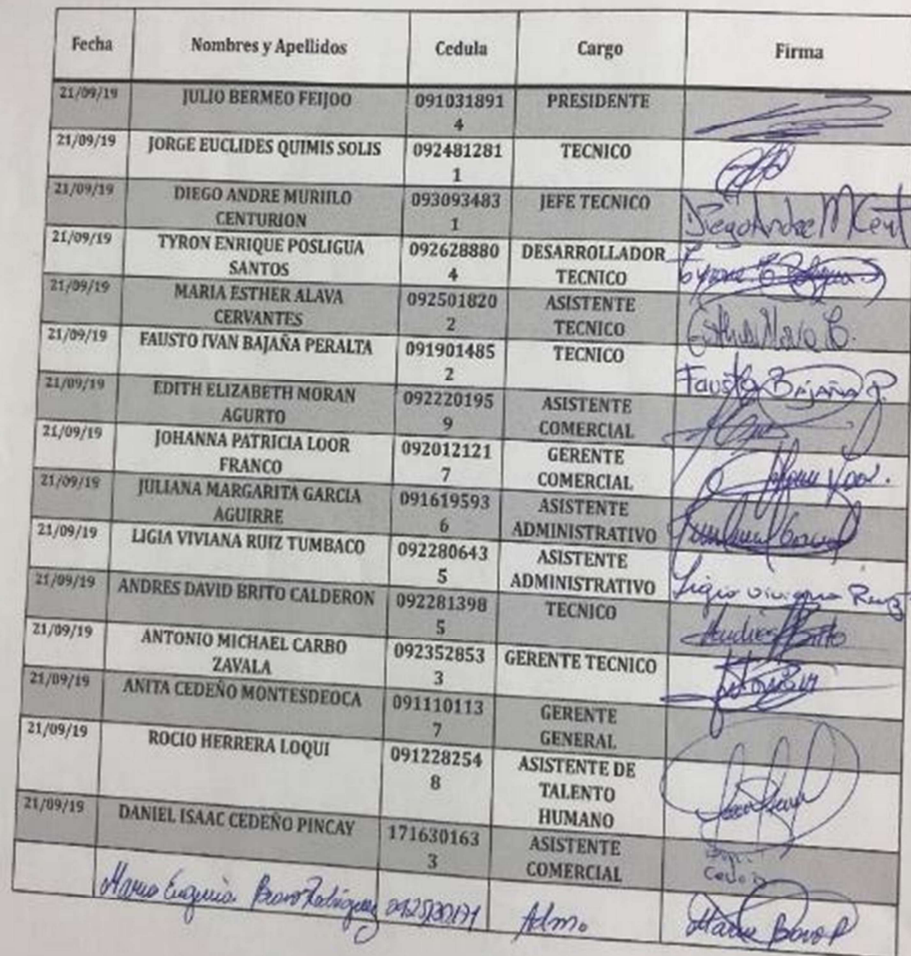 Fecha Nombres y Apellidos Cedula Cargo Firma
21/09/19 JULIO BERMEO FEIJOO 091031891 PRESIDENTE
4
21/09/19 JORGE EUCLIDES QUIMIS SOLIS 092481281 TECNICO
1
21/09/19 DIEGO ANDRE MURIILO 093093483 JEFE TECNICO Diego Andre M Cent
CENTURION 1
21/09/19 TYRON ENRIQUE POSLIGUA 092628880 DESARROLLADOR
SANTOS 4 TECNICO
21/09/19 MARIA ESTHER ALAVA 092501820 ASISTENTE
CERVANTES 2 TECNICO
21/09/19 FAUSTO IVAN BAJAÑA PERALTA 091901485 TECNICO Fausto Bajaña P.
2
21/09/19 EDITH ELIZABETH MORAN 092220195 ASISTENTE
AGURTO 9 COMERCIAL
21/09/19 JOHANNA PATRICIA LOOR 092012121 GERENTE
FRANCO 7 COMERCIAL
21/09/19 JULIANA MARGARITA GARCIA 091619593 ASISTENTE
AGUIRRE 6 ADMINISTRATIVO
21/09/19 LIGIA VIVIANA RUIZ TUMBACO 092280643 ASISTENTE
5 ADMINISTRATIVO Ligia Viviana Ruiz
21/09/19 ANDRES DAVID BRITO CALDERON 092281398 TECNICO
5 Andres Brito
21/09/19 ANTONIO MICHAEL CARBO 092352853 GERENTE TECNICO
ZAVALA 3
21/09/19 ANITA CEDEÑO MONTESDEOCA 091110113 GERENTE
7 GENERAL
21/09/19 ROCIO HERRERA LOQUI 091228254 ASISTENTE DE
8 TALENTO
HUMANO
21/09/19 DANIEL ISAAC CEDEÑO PINCAY 171630163 ASISTENTE
3 COMERCIAL
Maria Eugenia Bravo Rodriguez Adm.